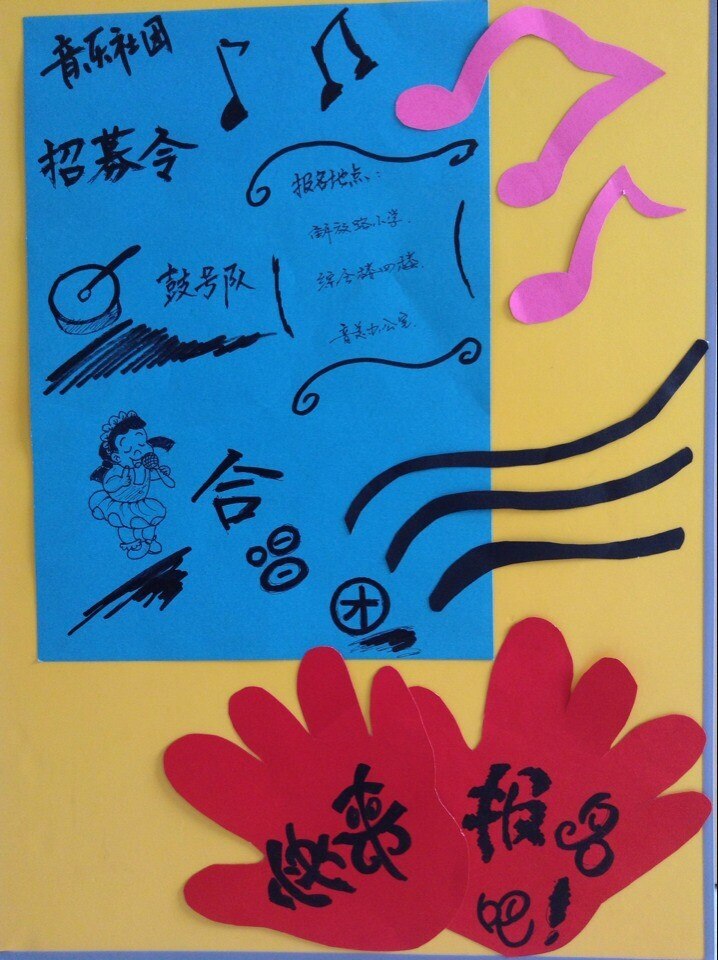 音乐社团
招募令
报名地点:
解放路小学.
综合楼四楼.
音美办公室
鼓号队
合唱团
快来
报名
吧!